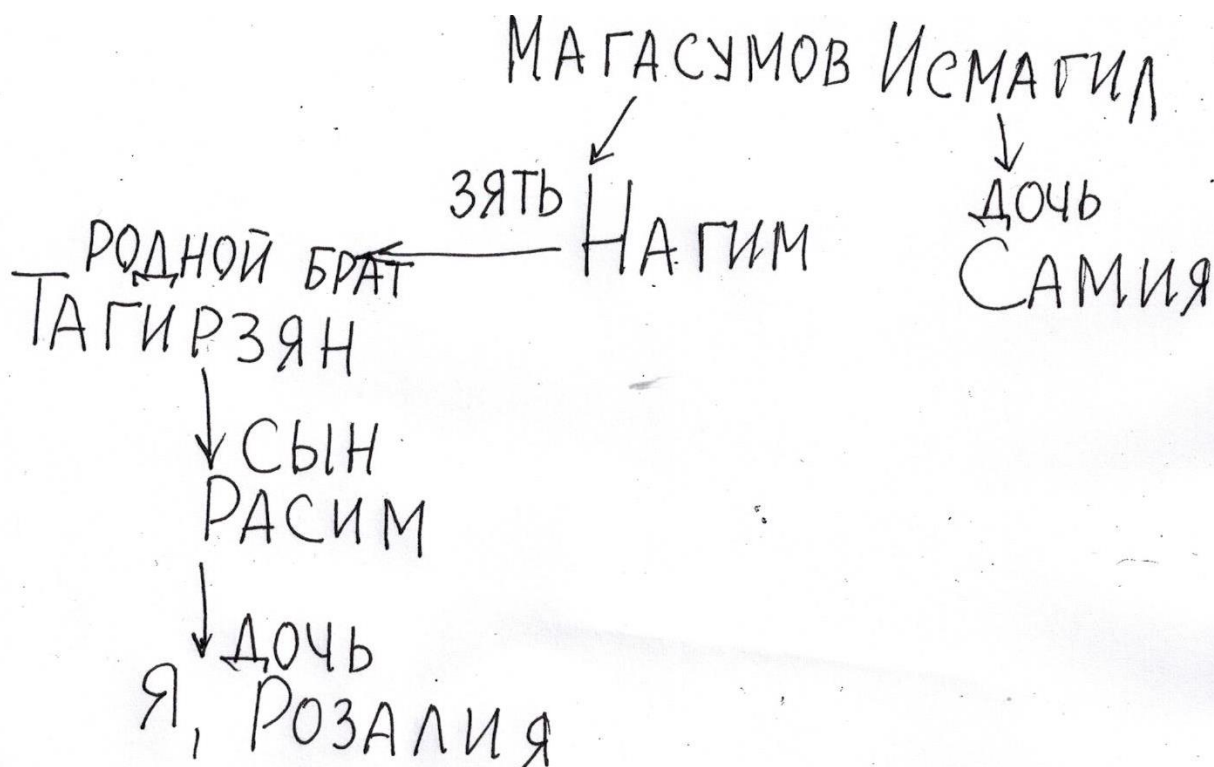 МАГАСУМОВ ИСМАГИЛ
ЗЯТЬ НАГИМ
ДОЧЬ
САМИЯ
РОДНОЙ БРАТ
ТАГИРЗЯН
СЫН
РАСИМ
ДОЧЬ
Я, РОЗАЛИЯ